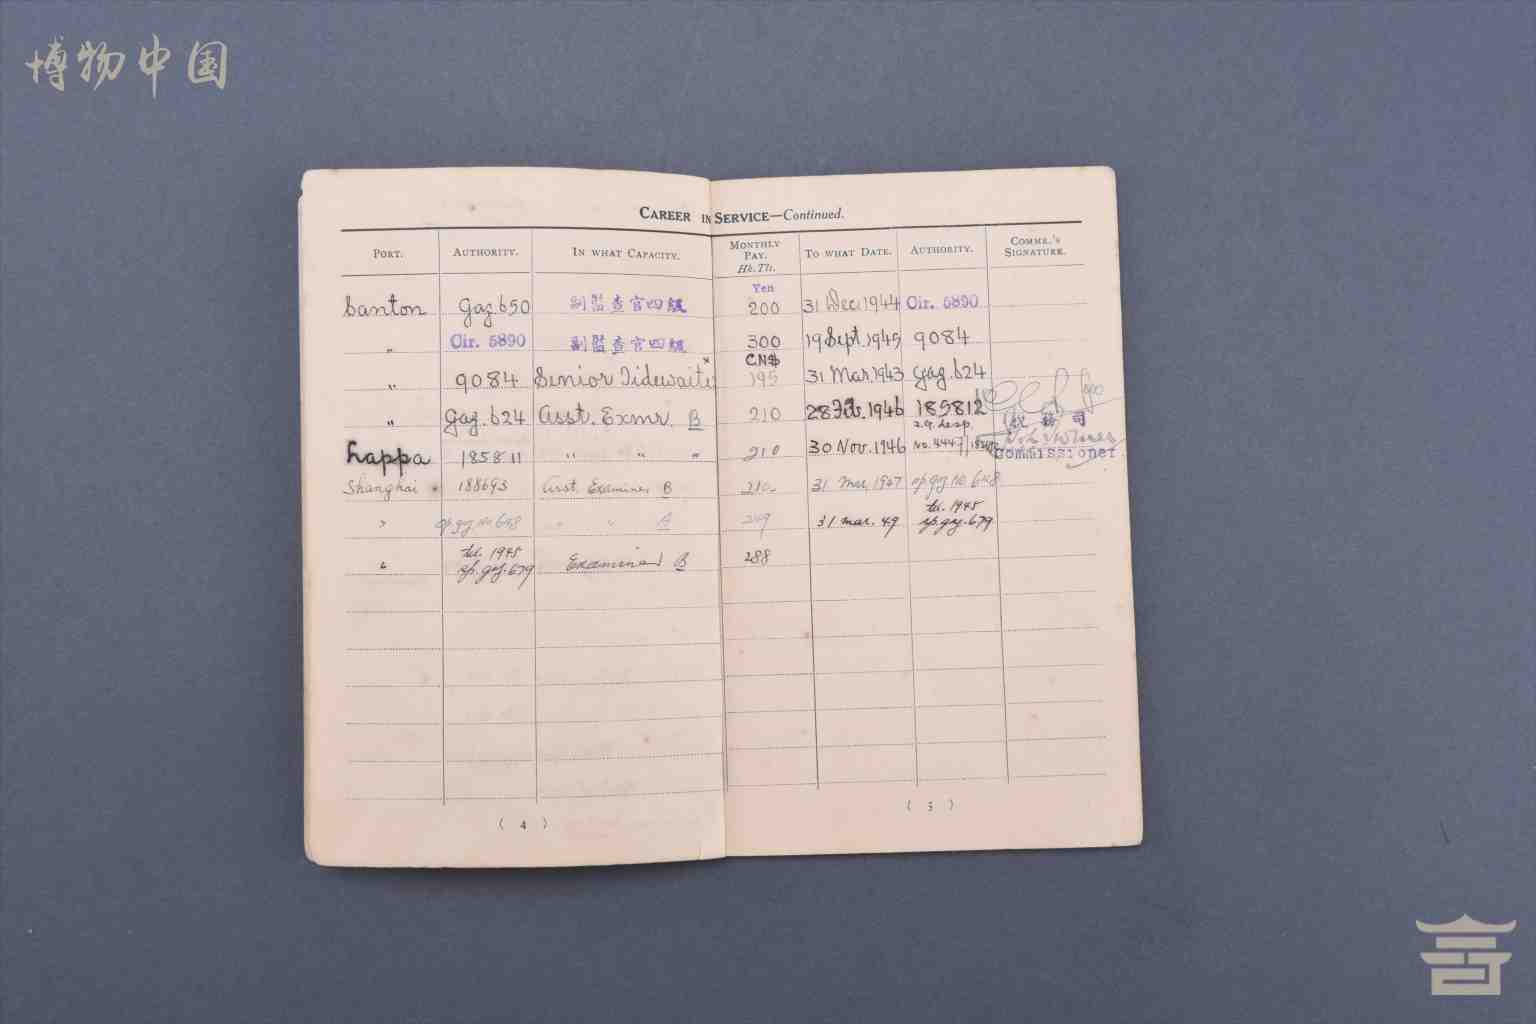 博物中国
CAREER IN SERVICE—Continued.
PORT. AUTHORITY. IN WHAT CAPACITY. MONTHLY PAY. Hk. Tls. TO WHAT DATE. AUTHORITY. COMMR.'S SIGNATURE.
Yen
Canton Gaz. 650 副監查官四級 200 31 Dec. 1944 Cir. 5890
" Cir. 5890 副監查官四級 300 19 Sept. 1945 9084
CN$
" 9084 Senior Tidewaiter x 195 31 Mar. 1943 Gaz. 624
" Gaz. 624 Asst. Exmr. B 210 28 Feb. 1946 185812
稅務司
Lappa 185811 " " " 210 30 Nov. 1946 No. 4447/
Commissioner
Shanghai 188693 Asst. Examiner B 210 31 Mar. 1947 sp. gaz. no. 648
" sp. gaz. no. 648 " " A 249 31 Mar. 49 tel. 1945 sp. gaz. 679
" tel. 1945 sp. gaz. 679 Examiner B 288
( 4 )
( 5 )